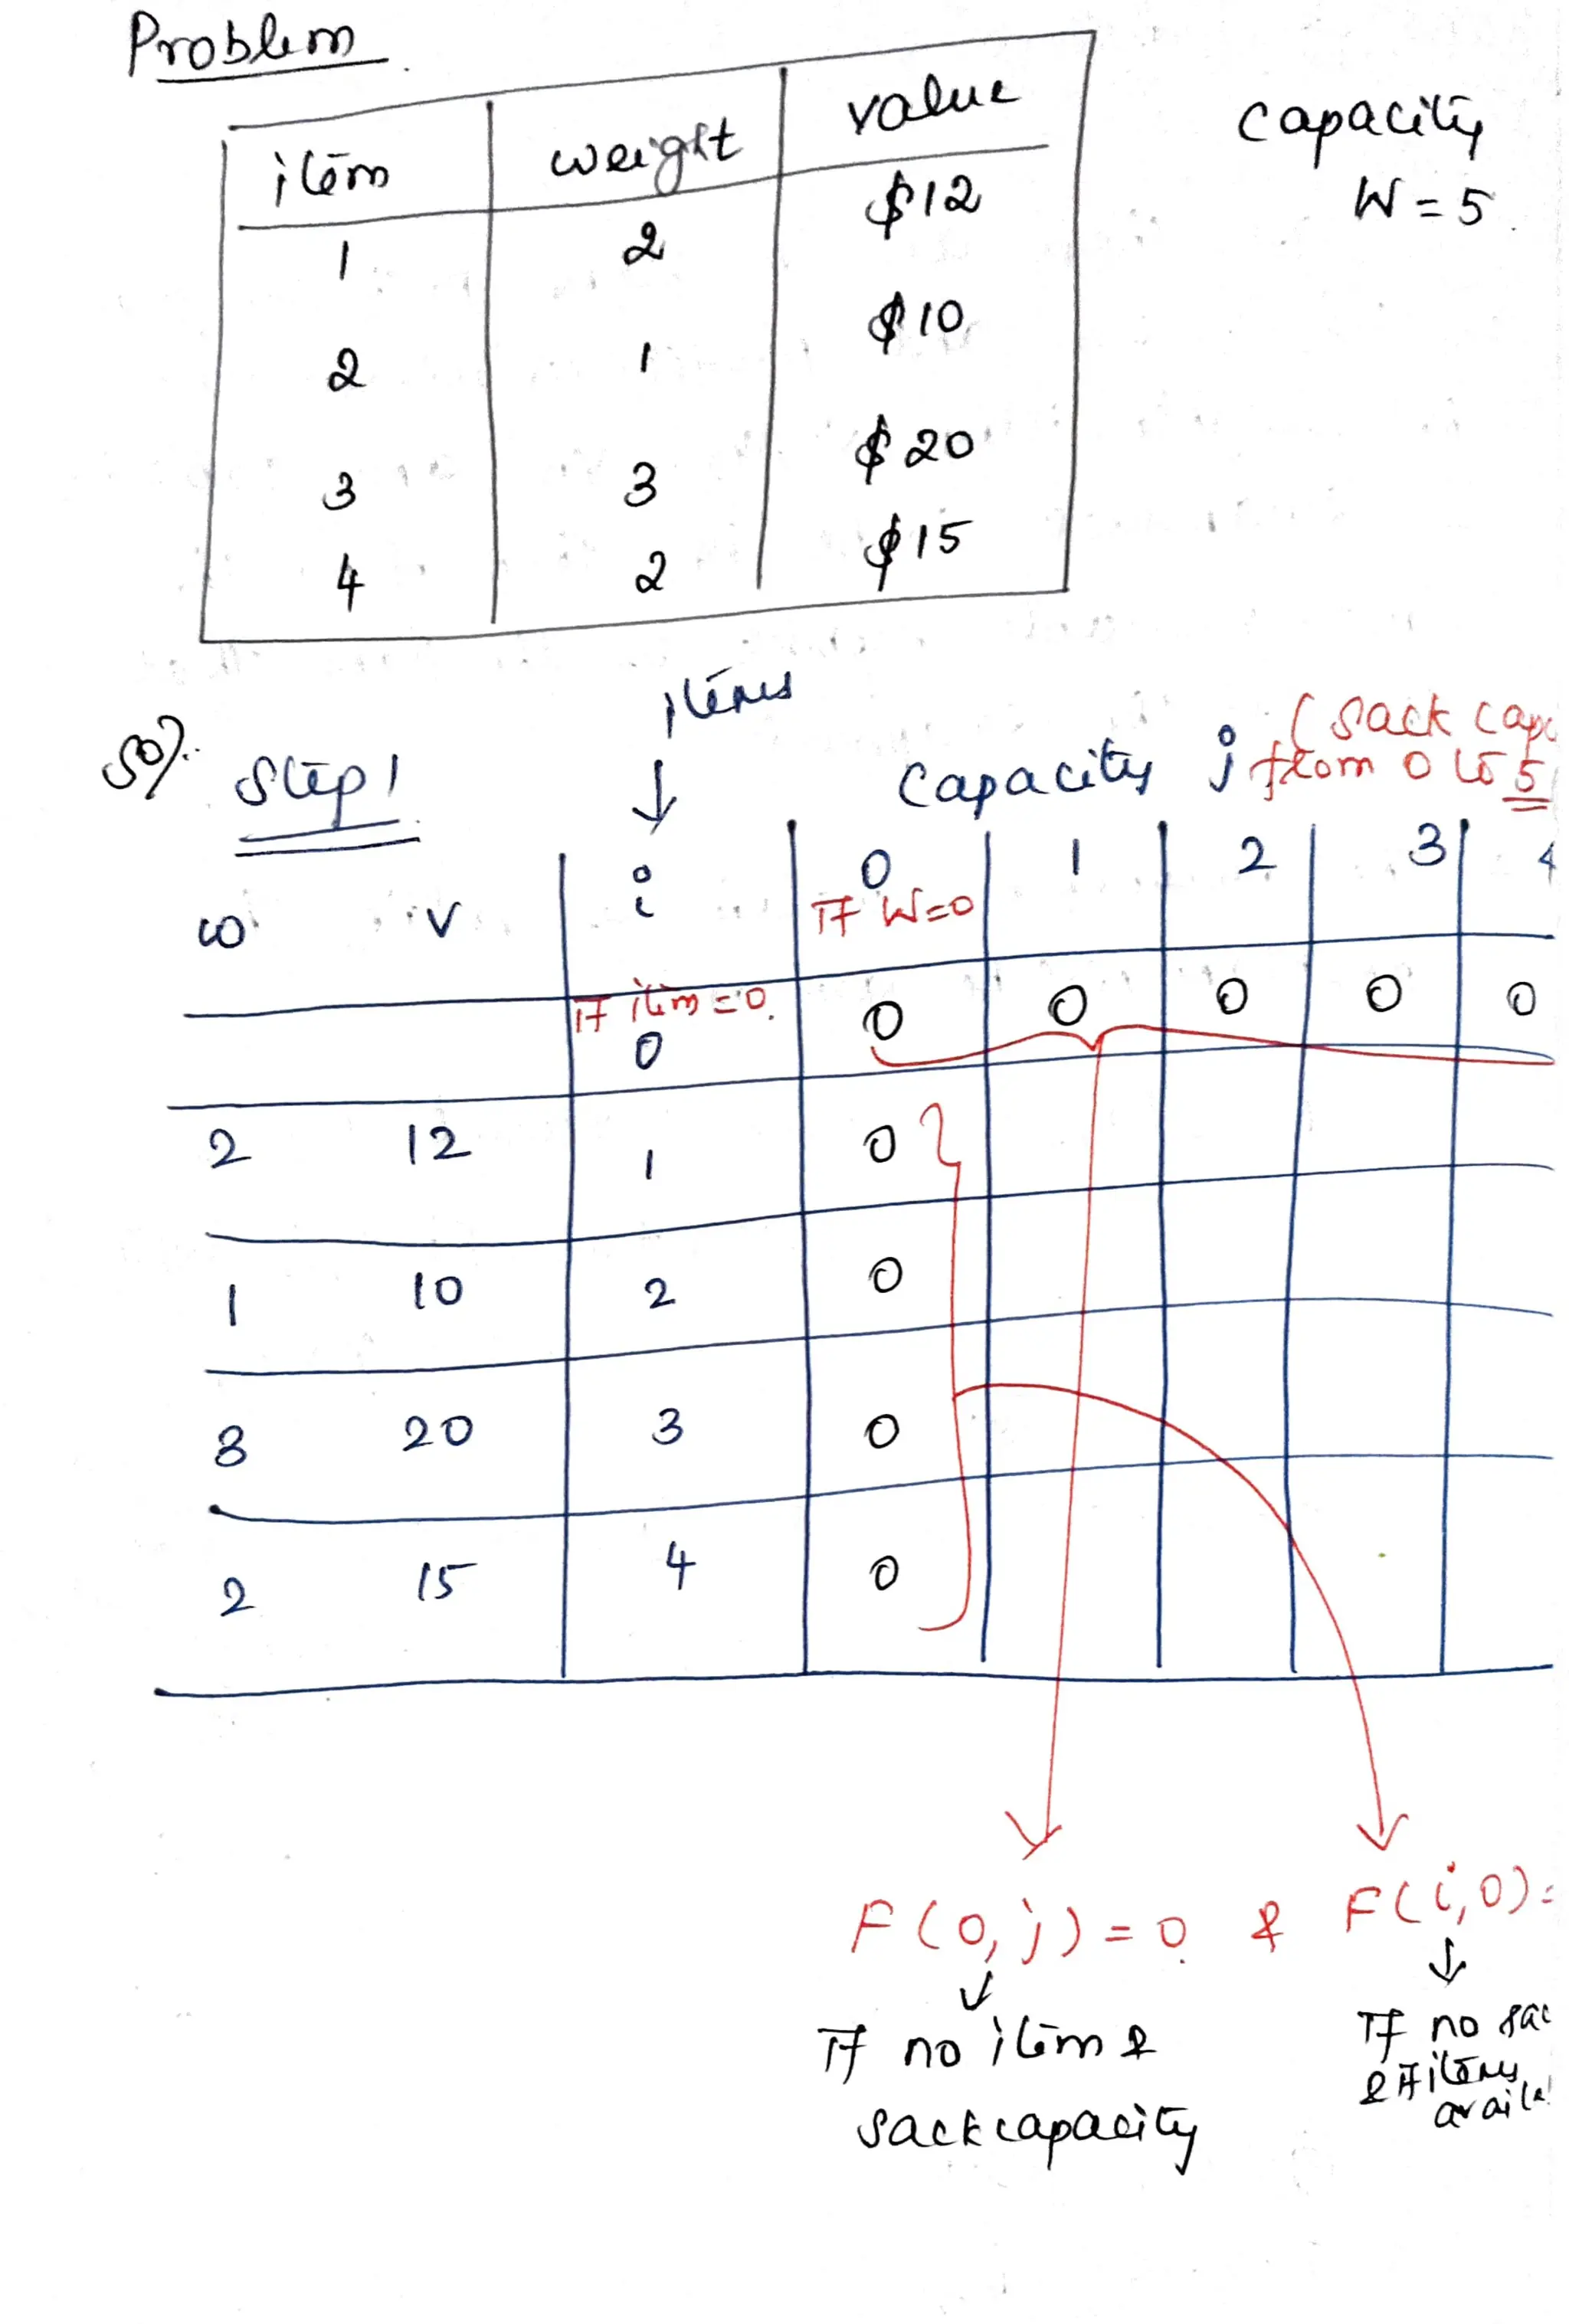 Problem
item weight value
1 2 $12
2 1 $10
3 3 $20
4 2 $15
Capacity
W = 5
items
Sol/:. Step 1
Capacity j (Sack
from 0 to 5
w v i 0 1 2 3 4
If W=0
If item = 0.
0 0 0 0 0 0
2 12 1 0
1 10 2 0
3 20 3 0
2 15 4 0
F(0, j) = 0 & F(i, 0) =
If no item &
sack capacity
If no
& If items